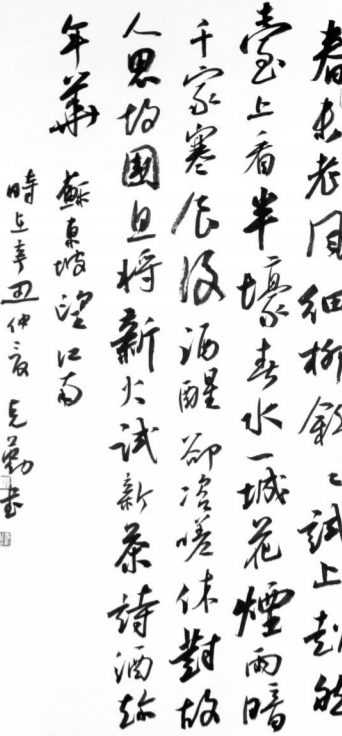 春未老風細柳斜々試上超然
臺上看半壕春水一城花煙雨暗
千家寒食後酒醒卻咨嗟休對故
人思故國且將新火試新茶詩酒趁
年華 蘇東坡望江南
時在辛丑仲夏 克勤書